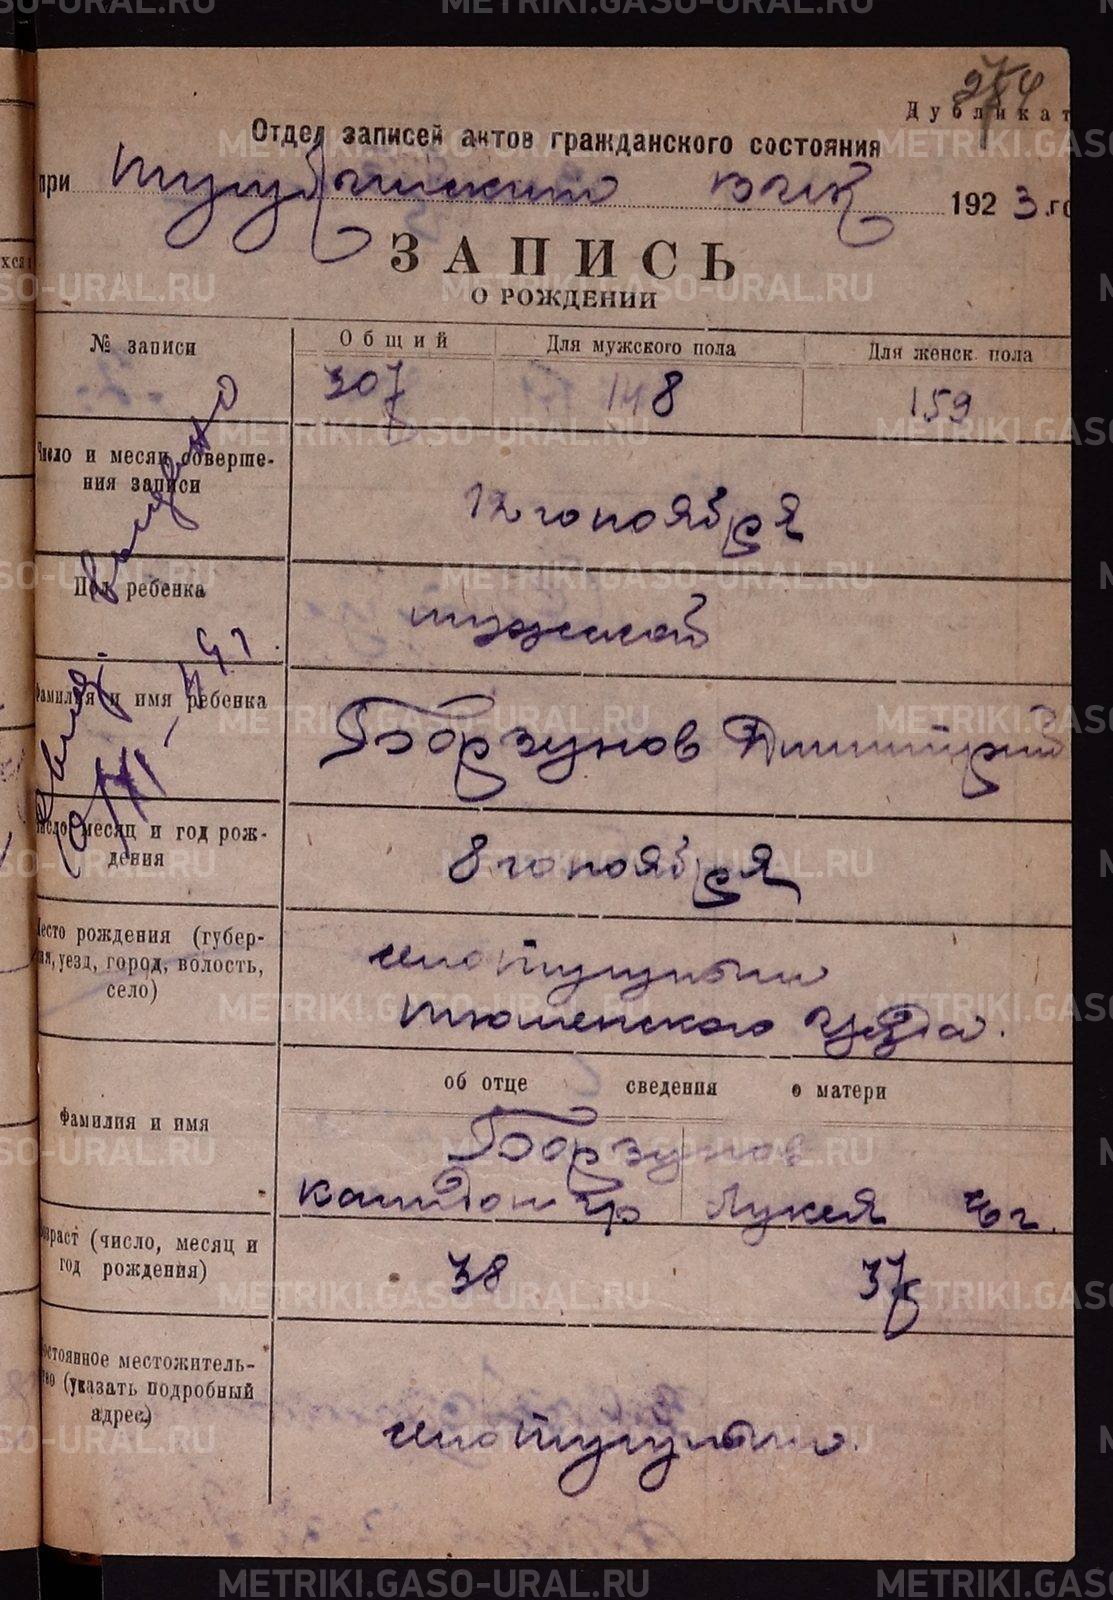 Дубликат
Отдел записей актов гражданского состояния
при ВИК 1923 .го
ЗАПИСЬ
О РОЖДЕНИИ
№ записи Общий Для мужского пола Для женск. пола
307 148 159
Число и месяц соверше-
ния записи
12 го ноября
Пол ребенка
мужской
Фамилия и имя ребенка
Борзунов Дмитрий
Число месяц и год рож-
дения
8 го ноября
Место рождения (губер-
ния, уезд, город, волость,
село)
село
Тюменского уезда.
об отце сведения о матери
Фамилия и имя
Борзунов
Лукея
Возраст (число, месяц и
год рождения)
38 37
Постоянное местожитель-
ство (указать подробный
адрес)
село
METRIKI.GASO-URAL.RU